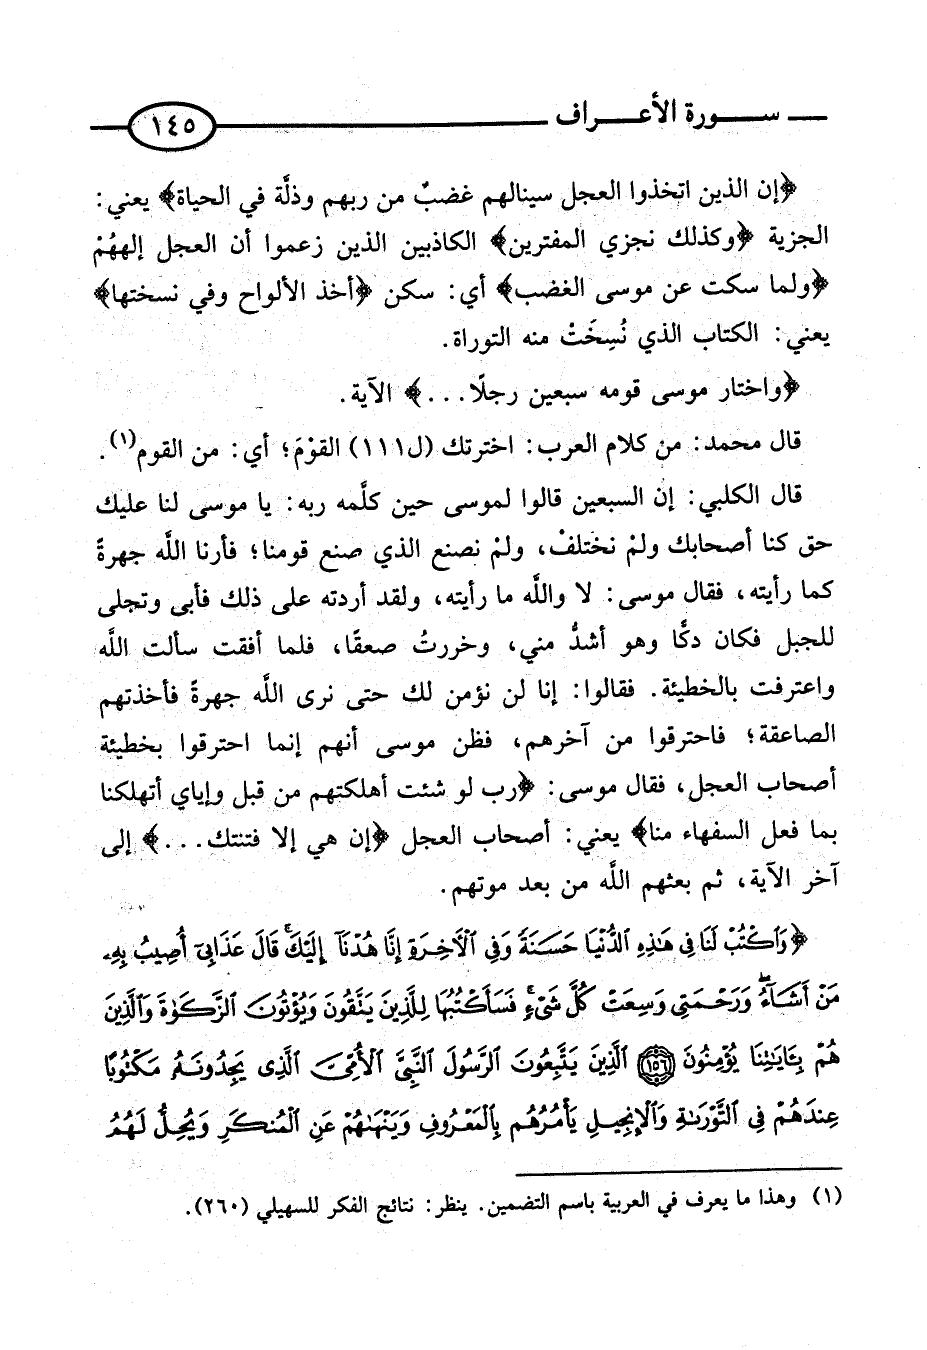 سورة الأعراف ١٤٥
﴿إن الذين اتخذوا العجل سينالهم غضبٌ من ربهم وذلَّة في الحياة﴾ يعني:
الجزية ﴿وكذلك نجزي المفترين﴾ الكاذبين الذين زعموا أن العجل إلههُمْ
﴿ولما سكت عن موسى الغضب﴾ أي: سكن ﴿أخذ الألواح وفي نسختها﴾
يعني: الكتاب الذي نُسِخَتْ منه التوراة.
﴿واختار موسى قومه سبعين رجلًا...﴾ الآية.
قال محمد: من كلام العرب: اخترتك (ل١١١) القوْمَ؛ أي: من القوم(١).
قال الكلبي: إن السبعين قالوا لموسى حين كلَّمه ربه: يا موسى لنا عليك
حق كنا أصحابك ولمْ نختلفْ، ولمْ نصنع الذي صنع قومنا؛ فأرنا اللَّه جهرةً
كما رأيته، فقال موسى: لا واللَّه ما رأيته، ولقد أردته على ذلك فأبى وتجلى
للجبل فكان دكًّا وهو أشدُّ مني، وخررتُ صعقًا، فلما أفقت سألت اللَّه
واعترفت بالخطيئة. فقالوا: إنا لن نؤمن لك حتى نرى اللَّه جهرةً فأخذتهم
الصاعقة؛ فاحترقوا من آخرهم، فظن موسى أنهم إنما احترقوا بخطيئة
أصحاب العجل، فقال موسى: ﴿رب لو شئت أهلكتهم من قبل وإياي أتهلكنا
بما فعل السفهاء منا﴾ يعني: أصحاب العجل ﴿إن هي إلا فتنتك...﴾ إلى
آخر الآية، ثم بعثهم اللَّه من بعد موتهم.
﴿وَٱكْتُبْ لَنَا فِي هَٰذِهِ ٱلدُّنْيَا حَسَنَةً وَفِي ٱلْآخِرَةِ إِنَّا هُدْنَآ إِلَيْكَ ۚ قَالَ عَذَابِىٓ أُصِيبُ بِهِۦ
مَنْ أَشَآءُ ۖ وَرَحْمَتِى وَسِعَتْ كُلَّ شَىْءٍ ۚ فَسَأَكْتُبُهَا لِلَّذِينَ يَتَّقُونَ وَيُؤْتُونَ ٱلزَّكَوٰةَ وَٱلَّذِينَ
هُم بِـَٔايَٰتِنَا يُؤْمِنُونَ ١٥٦ ٱلَّذِينَ يَتَّبِعُونَ ٱلرَّسُولَ ٱلنَّبِىَّ ٱلْأُمِّىَّ ٱلَّذِى يَجِدُونَهُۥ مَكْتُوبًا
عِندَهُمْ فِى ٱلتَّوْرَىٰةِ وَٱلْإِنجِيلِ يَأْمُرُهُم بِٱلْمَعْرُوفِ وَيَنْهَىٰهُمْ عَنِ ٱلْمُنكَرِ وَيُحِلُّ لَهُمُ
(١) وهذا ما يعرف في العربية باسم التضمين. ينظر: نتائج الفكر للسهيلي (٢٦٠).